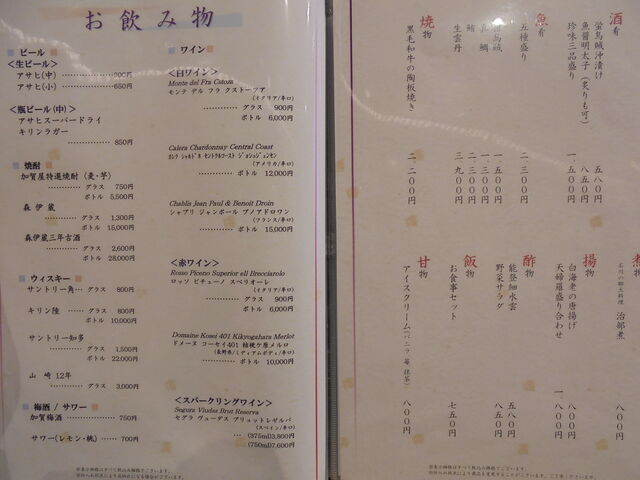 お飲み物
ビール
<生ビール>
アサヒ(中)
アサヒ(小) ………… 650円
<瓶ビール(中)>
アサヒスーパードライ
キリンラガー
………… 850円
焼酎
加賀屋特選焼酎 (麦・芋)
………… グラス 750円
ボトル 5,500円
森伊蔵
………… グラス 1,300円
ボトル 15,000円
森伊蔵三年古酒
………… グラス 2,600円
ボトル 28,000円
ウィスキー
サントリー角… グラス 800円
キリン陸 …… グラス 800円
ボトル 10,000円
サントリー知多
………… グラス 1,500円
ボトル 22,000円
山崎 12年
………… グラス 3,000円
梅酒 / サワー
加賀梅酒 ………… 750円
サワー(レモン・桃)…… 700円
ワイン
<白ワイン>
Monte del Fra Cstoza
モンテ デル フラ クストーツア
(イタリア/辛口)
………… グラス 900円
ボトル 6,000円
Calera Chardonnay Central Coast
(アメリカ/辛口)
………… ボトル 12,000円
Chablis Jean Paul & Benoit Droin
シャブリ ジャンポール ブノアドロワン
(フランス/辛口)
………… ボトル 15,000円
<赤ワイン>
Rosso Piceno Superior ell Brecciarolo
ロッソ ピチェーノ スペリオーレ
(イタリア/辛口)
………… グラス 900円
ボトル 6,000円
Domaine Kosei 401 Kikyogahara Merlot
ドメーヌ コーセイ401 桔梗ケ原メルロ
(長野県/ミディアムボディ/辛口)
………… ボトル 10,000円
<スパークリングワイン>
Segura Viudas Brut Reserva
セグラ ヴューダス ブリュットレゼルバ
(スペイン/辛口)
… (375ml)3,800円
(750ml)7,600円
酒肴
蛍烏賊沖漬け 五八〇円
魚醤明太子(炙りも可) 八五〇円
珍味三品盛り 一、五〇〇円
魚肴
五種盛り 二、三〇〇円
烏賊 一、五〇〇円
鯛 一、三〇〇円
鮪 二、三〇〇円
生雲丹 三、九〇〇円
焼物
黒毛和牛の陶板焼き 二、二〇〇円
煮物
石川の郷土料理 治部煮 八〇〇円
揚物
白海老の唐揚げ 八〇〇円
天婦羅盛り合わせ 一、八〇〇円
酢物
能登細水雲 五八〇円
野菜サラダ 八五〇円
飯物
お食事セット 七五〇円
甘物
アイスクリーム(バニラ 苺 抹茶) 八〇〇円